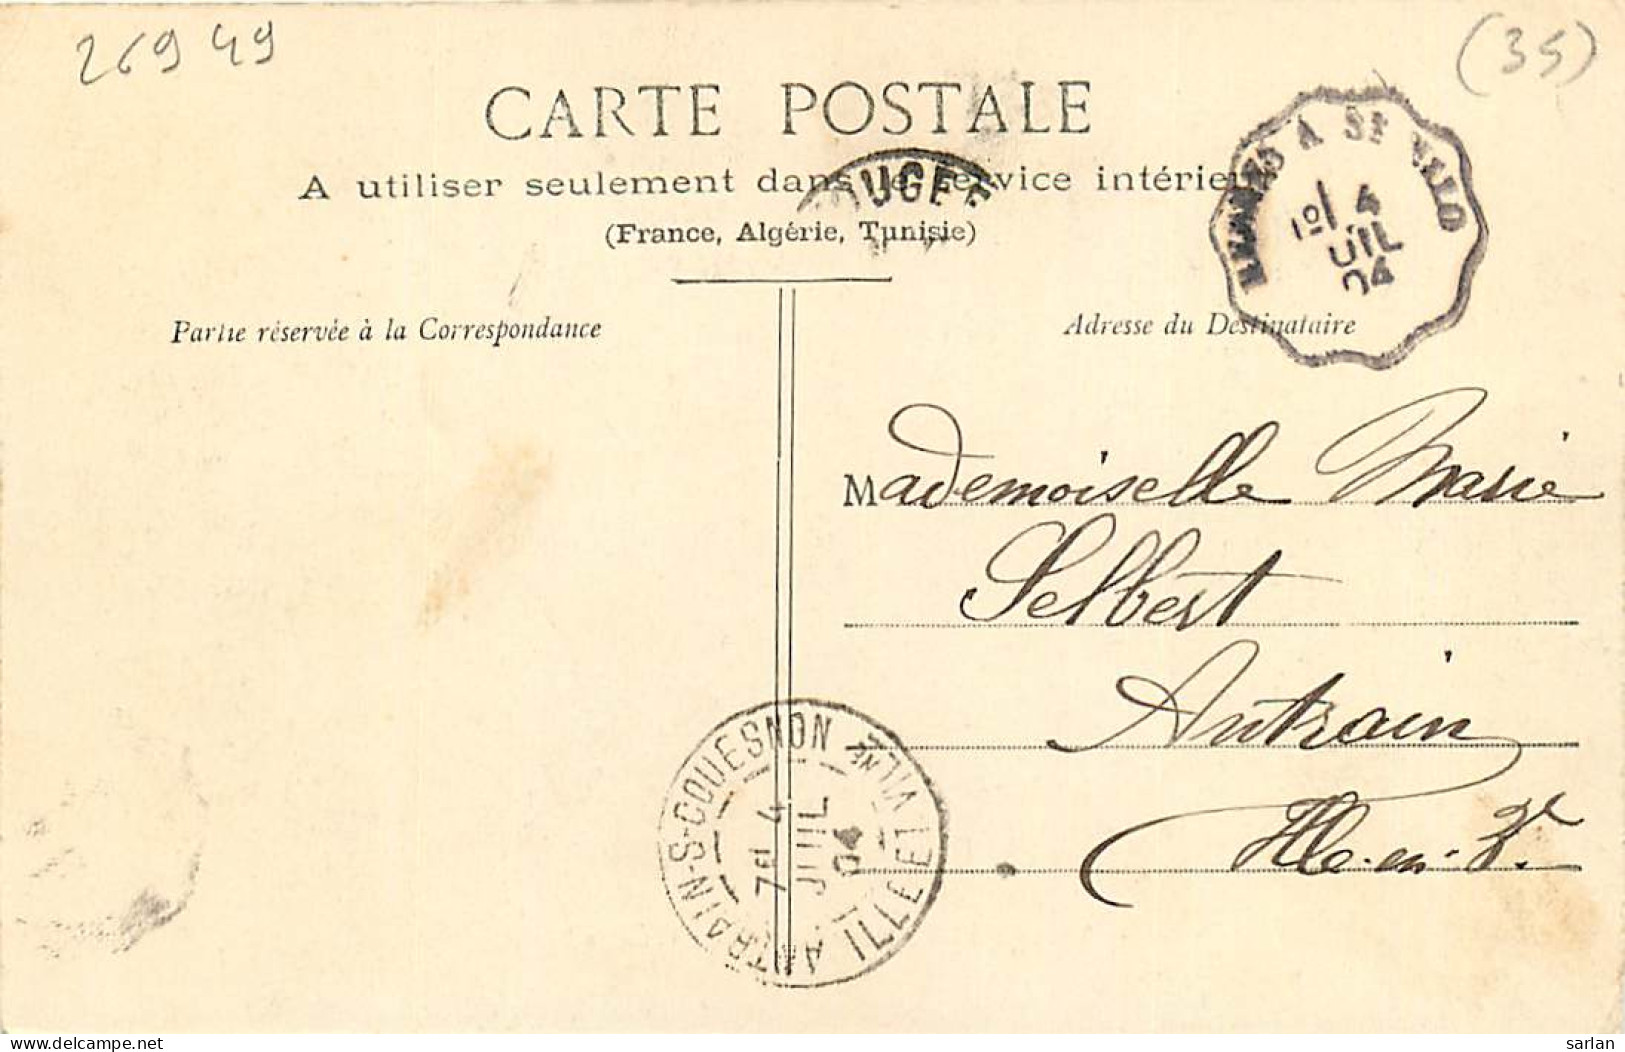 26949
(35)
CARTE POSTALE
A utiliser seulement dans le service intérieur
(France, Algérie, Tunisie)
RENNES A ST MALO
4
JUIL
04
OUGE
Partie réservée à la Correspondance
Adresse du Destinataire
Mademoiselle Marie
Selbert
Antrain
Ille-en-Ve
ANTRAIN-S-COUESNON ILLE ET VILNE
7E 4
JUIL
04
delcampe.net
sarlan